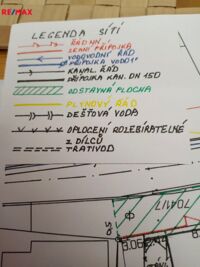 RE/MAX
LEGENDA SÍTÍ
ŘAD NN
ZEMNÍ PŘÍPOJKA
VODOVODNÍ ŘAD
PŘÍPOJKA VODY
KANAL. ŘAD
PŘÍPOJKA KAN. DN 150
ODSTAVNÁ PLOCHA
PLYNOVÝ ŘAD
DEŠŤOVÁ VODA
OPLOCENÍ ROZEBIRATELNÉ
Z DÍLCŮ
TRATIVOD
704/1